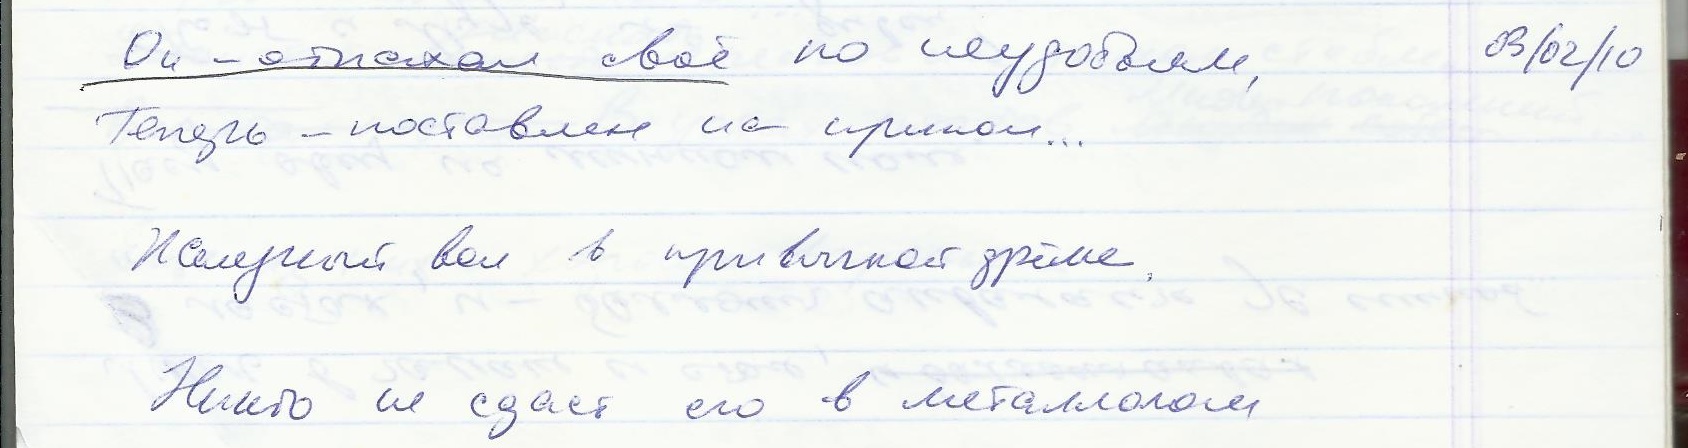 Он – отпахал своё по неудобьям, 03/02/10
Теперь – поставлен на прикол...
Железный вол в привычной дрёме,
Никто не сдаст его в металлолом